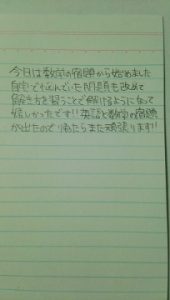 今日は数学の宿題から始めました
自宅で悩んでいた問題も改めて
解き方を習うことで解けるようになって
嬉しかったです!!英語と数学の宿題
が出たので またまた頑張ります!!